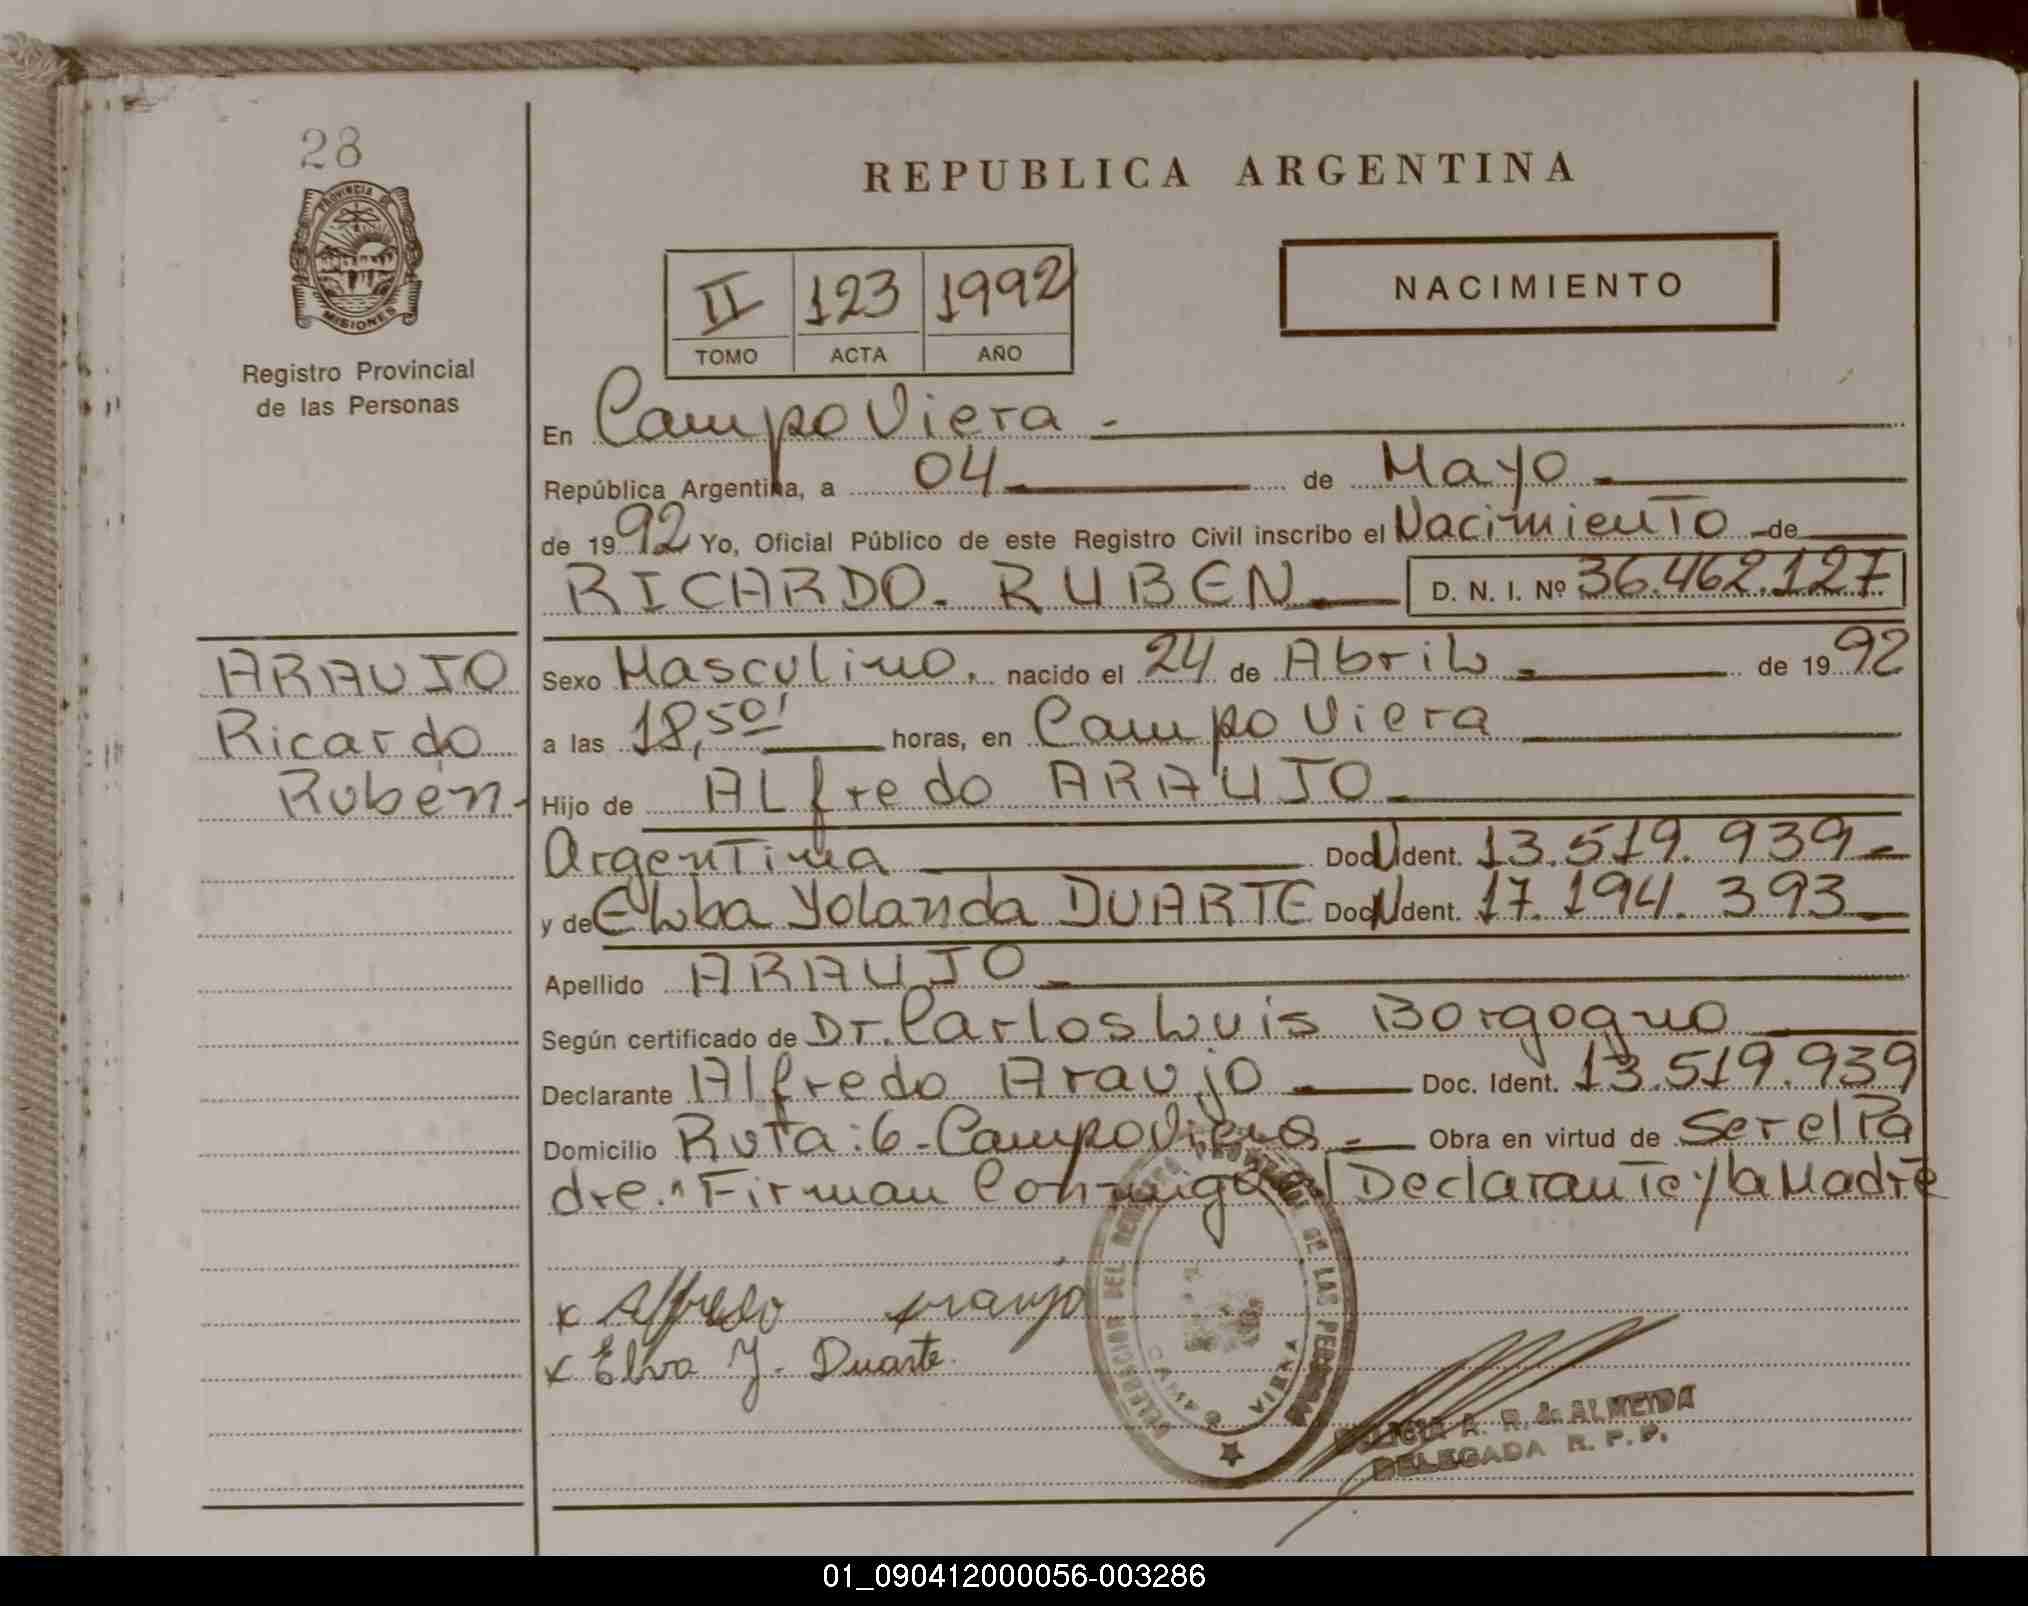 28
REPUBLICA ARGENTINA
PROVINCIA DE
MISIONES
Registro Provincial
de las Personas
II 123 1992
TOMO ACTA AÑO
NACIMIENTO
En Campo Viera -
República Argentina, a 04 de Mayo
de 1992 Yo, Oficial Público de este Registro Civil inscribo el Nacimiento de
RICARDO. RUBEN D. N. I. Nº 36.462.127
ARAUJO
Ricardo
Rubén-
Sexo Masculino. nacido el 24 de Abril de 1992
a las 18,50' horas, en Campo Viera
Hijo de ALfredo ARAUJO
Argentina Doc N Ident. 13.519.939-
y de Elba Yolanda DUARTE Doc N Ident. 17.194.393
Apellido ARAUJO
Según certificado de Dr. Carlos Luis Borgogno
Declarante Alfredo Araujo Doc. Ident. 13.519.939
Domicilio Ruta: 6- Campo Viera - Obra en virtud de Ser el Pa
dre." Firman Conmigo el Declarante y la Madre
x Alfredo Araujo
x Elva Y. Duarte.
DEL REGISTRO PROVINCIAL DE LAS PERSONAS
VIERA
A. R. de ALMEIDA
DELEGADA R. P. P.
01_090412000056-003286